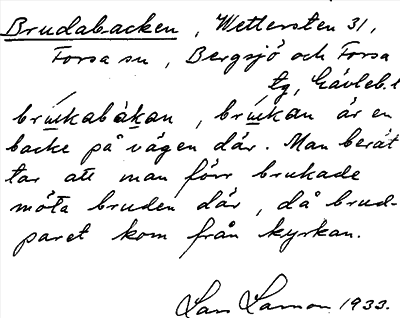 Brudabacken, Wettersten 31,
Forsa sn, Bergsjö och Forsa
tg, Gävleb. l
brukabákan, brukan är en
backe på vägen där. Man berät
tar att man förr brukade
möta bruden där, då brud-
paret kom från kyrkan.
Lars Larson 1933.